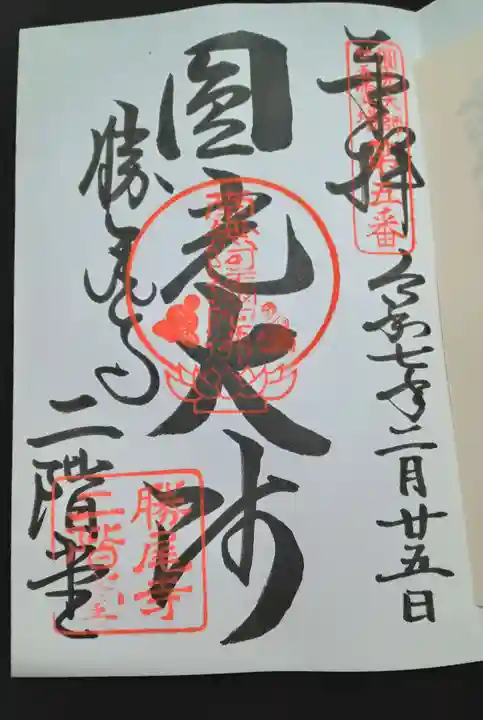 奉拝
圓光大師
第五番
令和七年二月廿五日
圓光大師
勝尾寺
二階堂
勝尾寺
二階堂